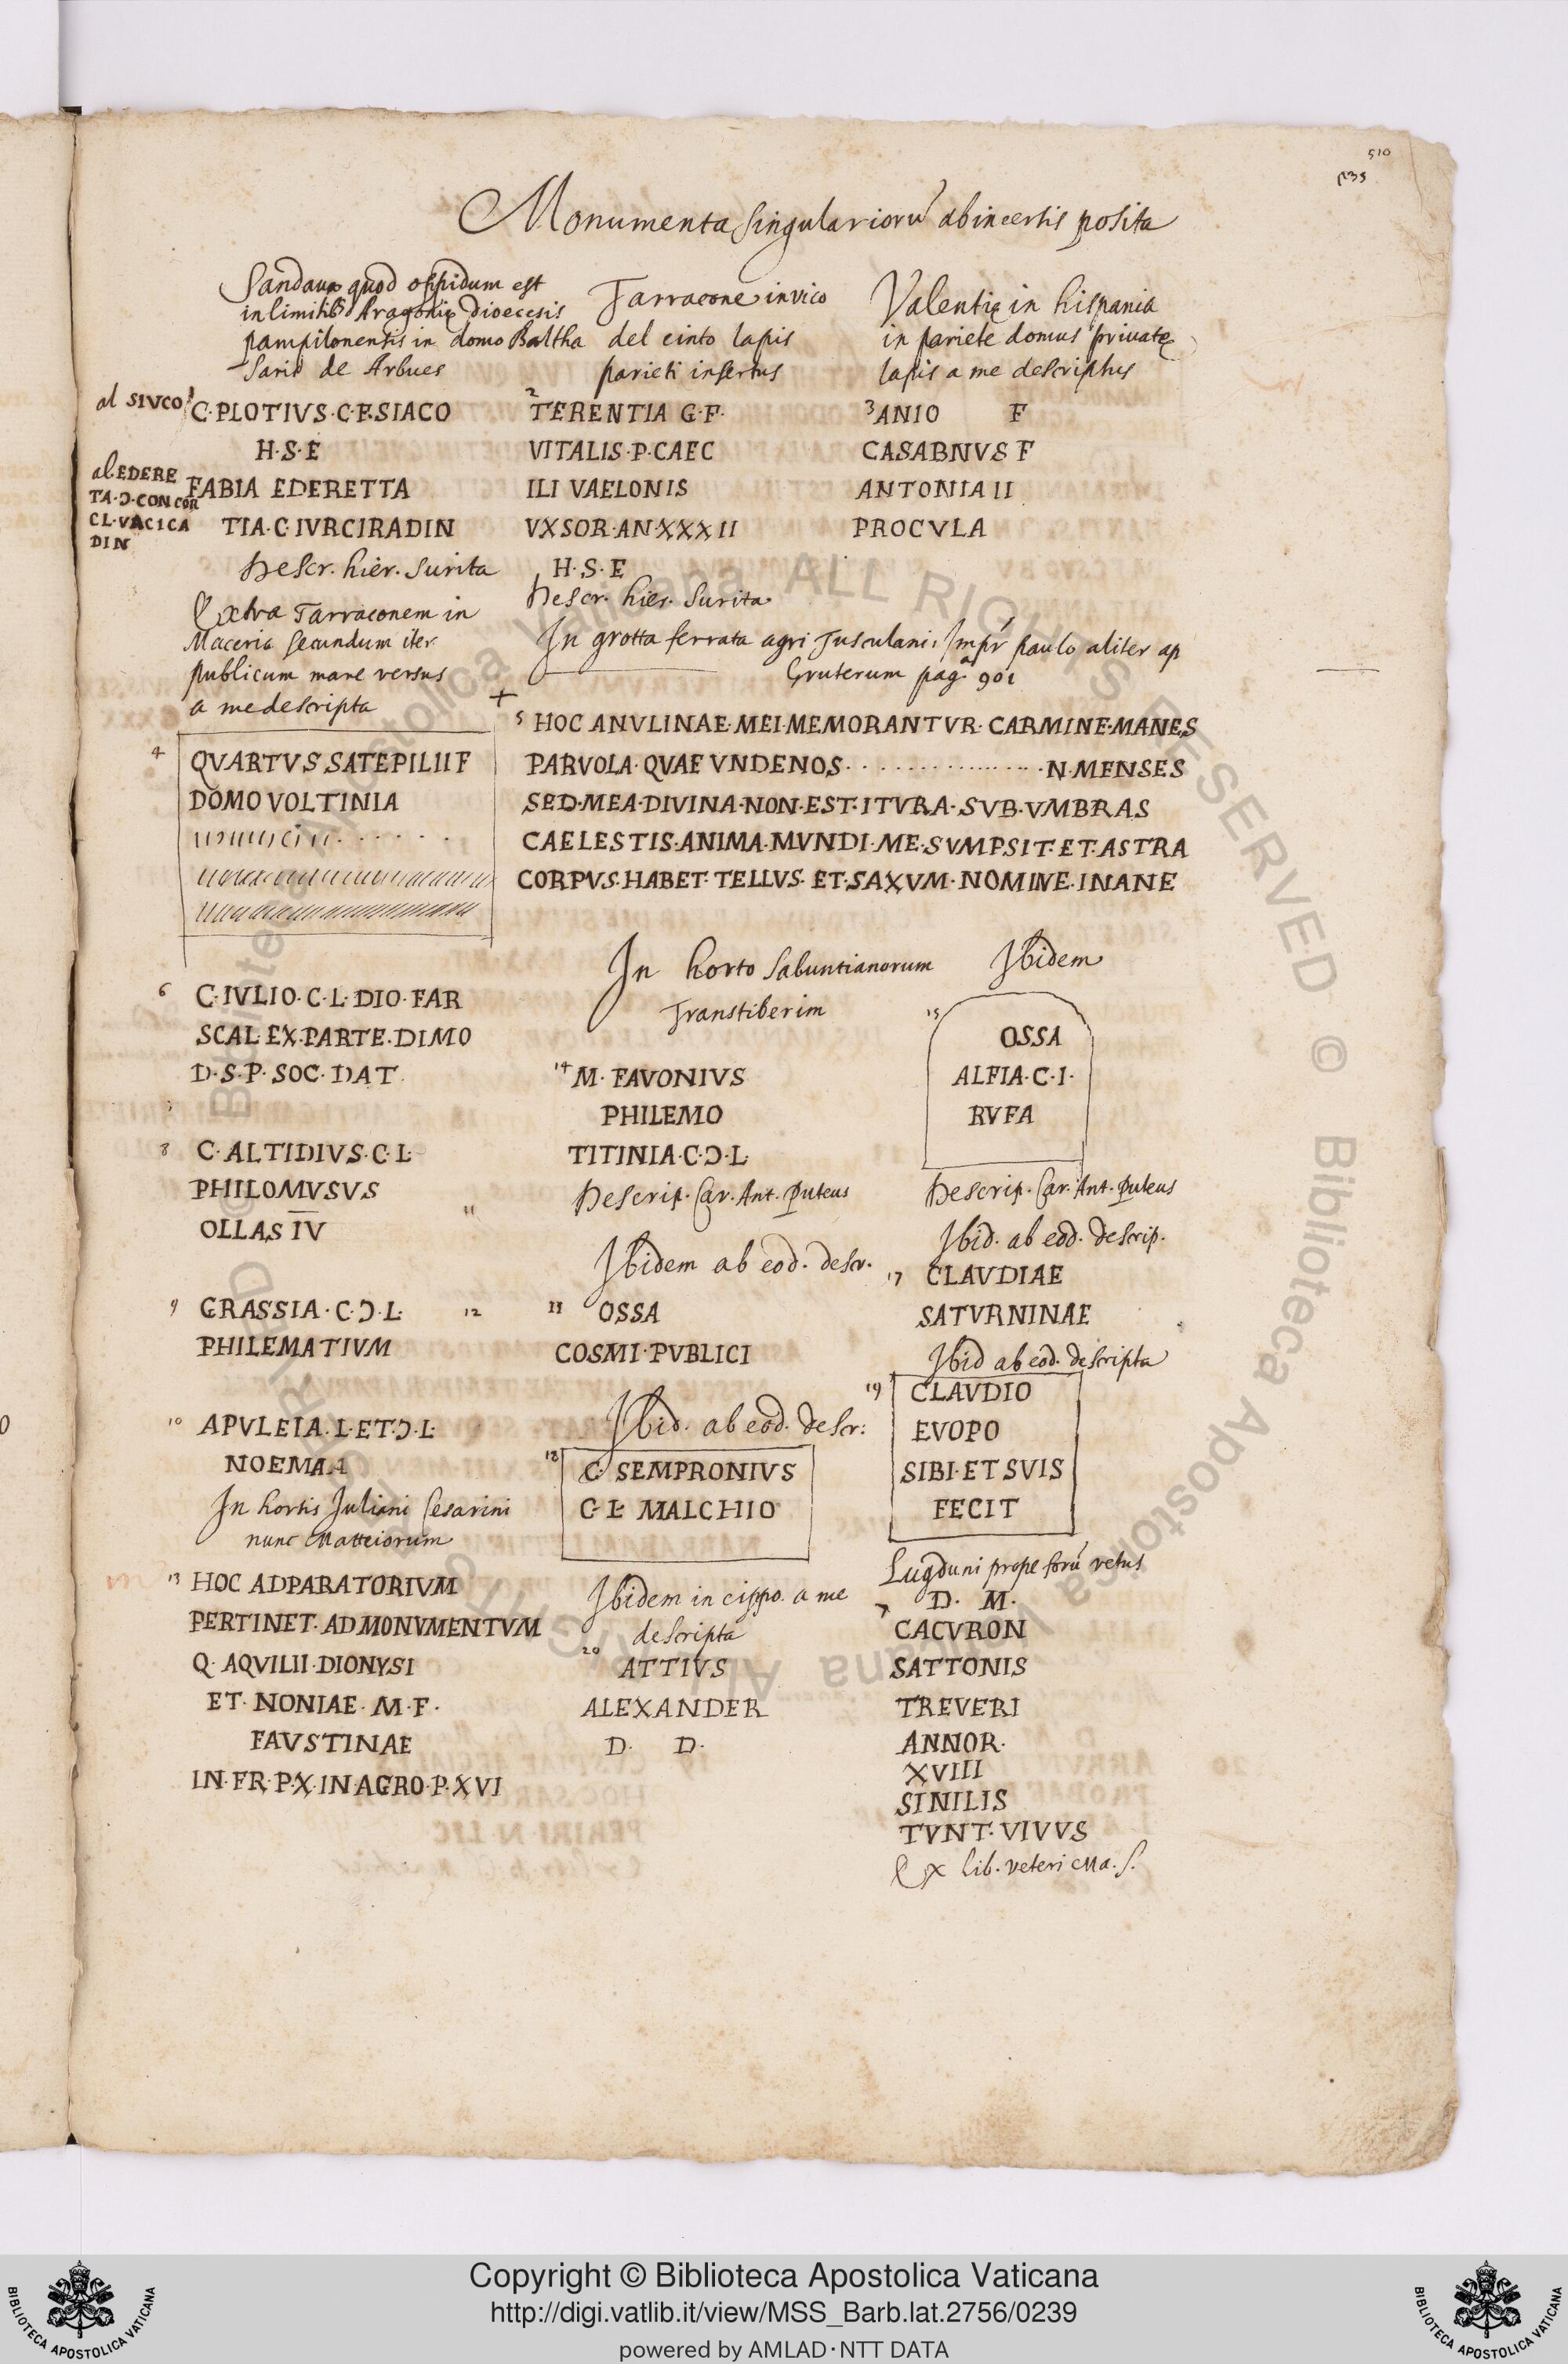 510
235
Monumenta singulariorū ab incertis posita
Sandauæ quod oppidum est
in limitib Aragoniæ dioecesis
pampilonensis in domo Baltha
Saris de Arbues
al SIVCO
1 C·PLOTIVS·C·F·SIACO
H·S·E
al EDERE
TA·Ɔ·CONCOR
CL·VACICA
DIN
FABIA EDERETTA
TIA·C·IVRCIRADIN
Descr. hier. Surita
Tarracone in vico
del cinto lapis
parieti insertus
2 TERENTIA G·F·
VITALIS·P·CAEC
ILI VAELONIS
VXSOR·AN·XXXII
H·S·E
Descr. hier. Surita
Valentiæ in hispania
in pariete domus privatę
lapis a me descriptus
3 ANIO F
CASABNVS F
ANTONIA II
PROCVLA
Extra Tarraconem in
Maceria secundum iter
publicum mare versus
a me descripta
4 QVARTVS SATEPILII F
DOMO VOLTINIA
In grotta ferrata agri Tusculani; Impr paulo aliter ap
Gruterum pag.ª 901
+
5 HOC ANVLINAE·MEI·MEMORANTVR·CARMINE·MANES
PARVOLA·QVAE VNDENOS················N·MENSES
SED·MEA·DIVINA·NON·EST·ITVRA·SVB·VMBRAS
CAELESTIS·ANIMA·MVNDI·ME·SVMPSIT·ET·ASTRA
CORPVS·HABET·TELLVS·ET·SAXVM·NOMINE·INANE
6 C·IVLIO·C·L·DIO·FAR
SCAL·EX·PARTE·DIMO
D·S·P·SOC·DAT
8 C·ALTIDIVS·C·L·
PHILOMVSVS
OLLAS IV
11
9 GRASSIA·C·Ɔ·L·
PHILEMATIVM
12
10 APVLEIA·L·ET·Ɔ·L·
NOEMAA
In hortis Juliani Cesarini
nunc Matteiorum
13 HOC ADPARATORIVM
PERTINET·AD MONVMENTVM
Q·AQVILII·DIONYSI
ET·NONIAE·M·F·
FAVSTINAE
IN·FR·P·X·IN AGRO·P·XVI
In horto Sabuntianorum
Transtiberim
14 M·FAVONIVS
PHILEMO
TITINIA·C·Ɔ·L·
Descrip. Car. Ant. Puteus
Ibidem ab eod. descr.
OSSA
COSMI·PVBLICI
Ibid. ab eod. descr:
18 C·SEMPRONIVS
C·L·MALCHIO
Ibidem in cippo a me
descripta
20 ATTIVS
ALEXANDER
D. D.
Ibidem
15 OSSA
ALFIA·C·I·
RVFA
Descrip. Car. Ant. Puteus
Ibid. ab eod. descrip.
17 CLAVDIAE
SATVRNINAE
Ibid ab eod. descripta
19 CLAVDIO
EVOPO
SIBI·ET SVIS
FECIT
Lugduni prope forū vetus
7 D. M.
CACVRON
SATTONIS
TREVERI
ANNOR·
XVIII
SINILIS
TVNT·VIVVS
Ex lib. veteri Ma. S.
Biblioteca Apostolica Vaticana ALL RIGHTS RESERVED ©
Copyright © Biblioteca Apostolica Vaticana
http://digi.vatlib.it/view/MSS_Barb.lat.2756/0239
powered by AMLAD·NTT DATA
BIBLIOTECA APOSTOLICA VATICANA
BIBLIOTECA APOSTOLICA VATICANA